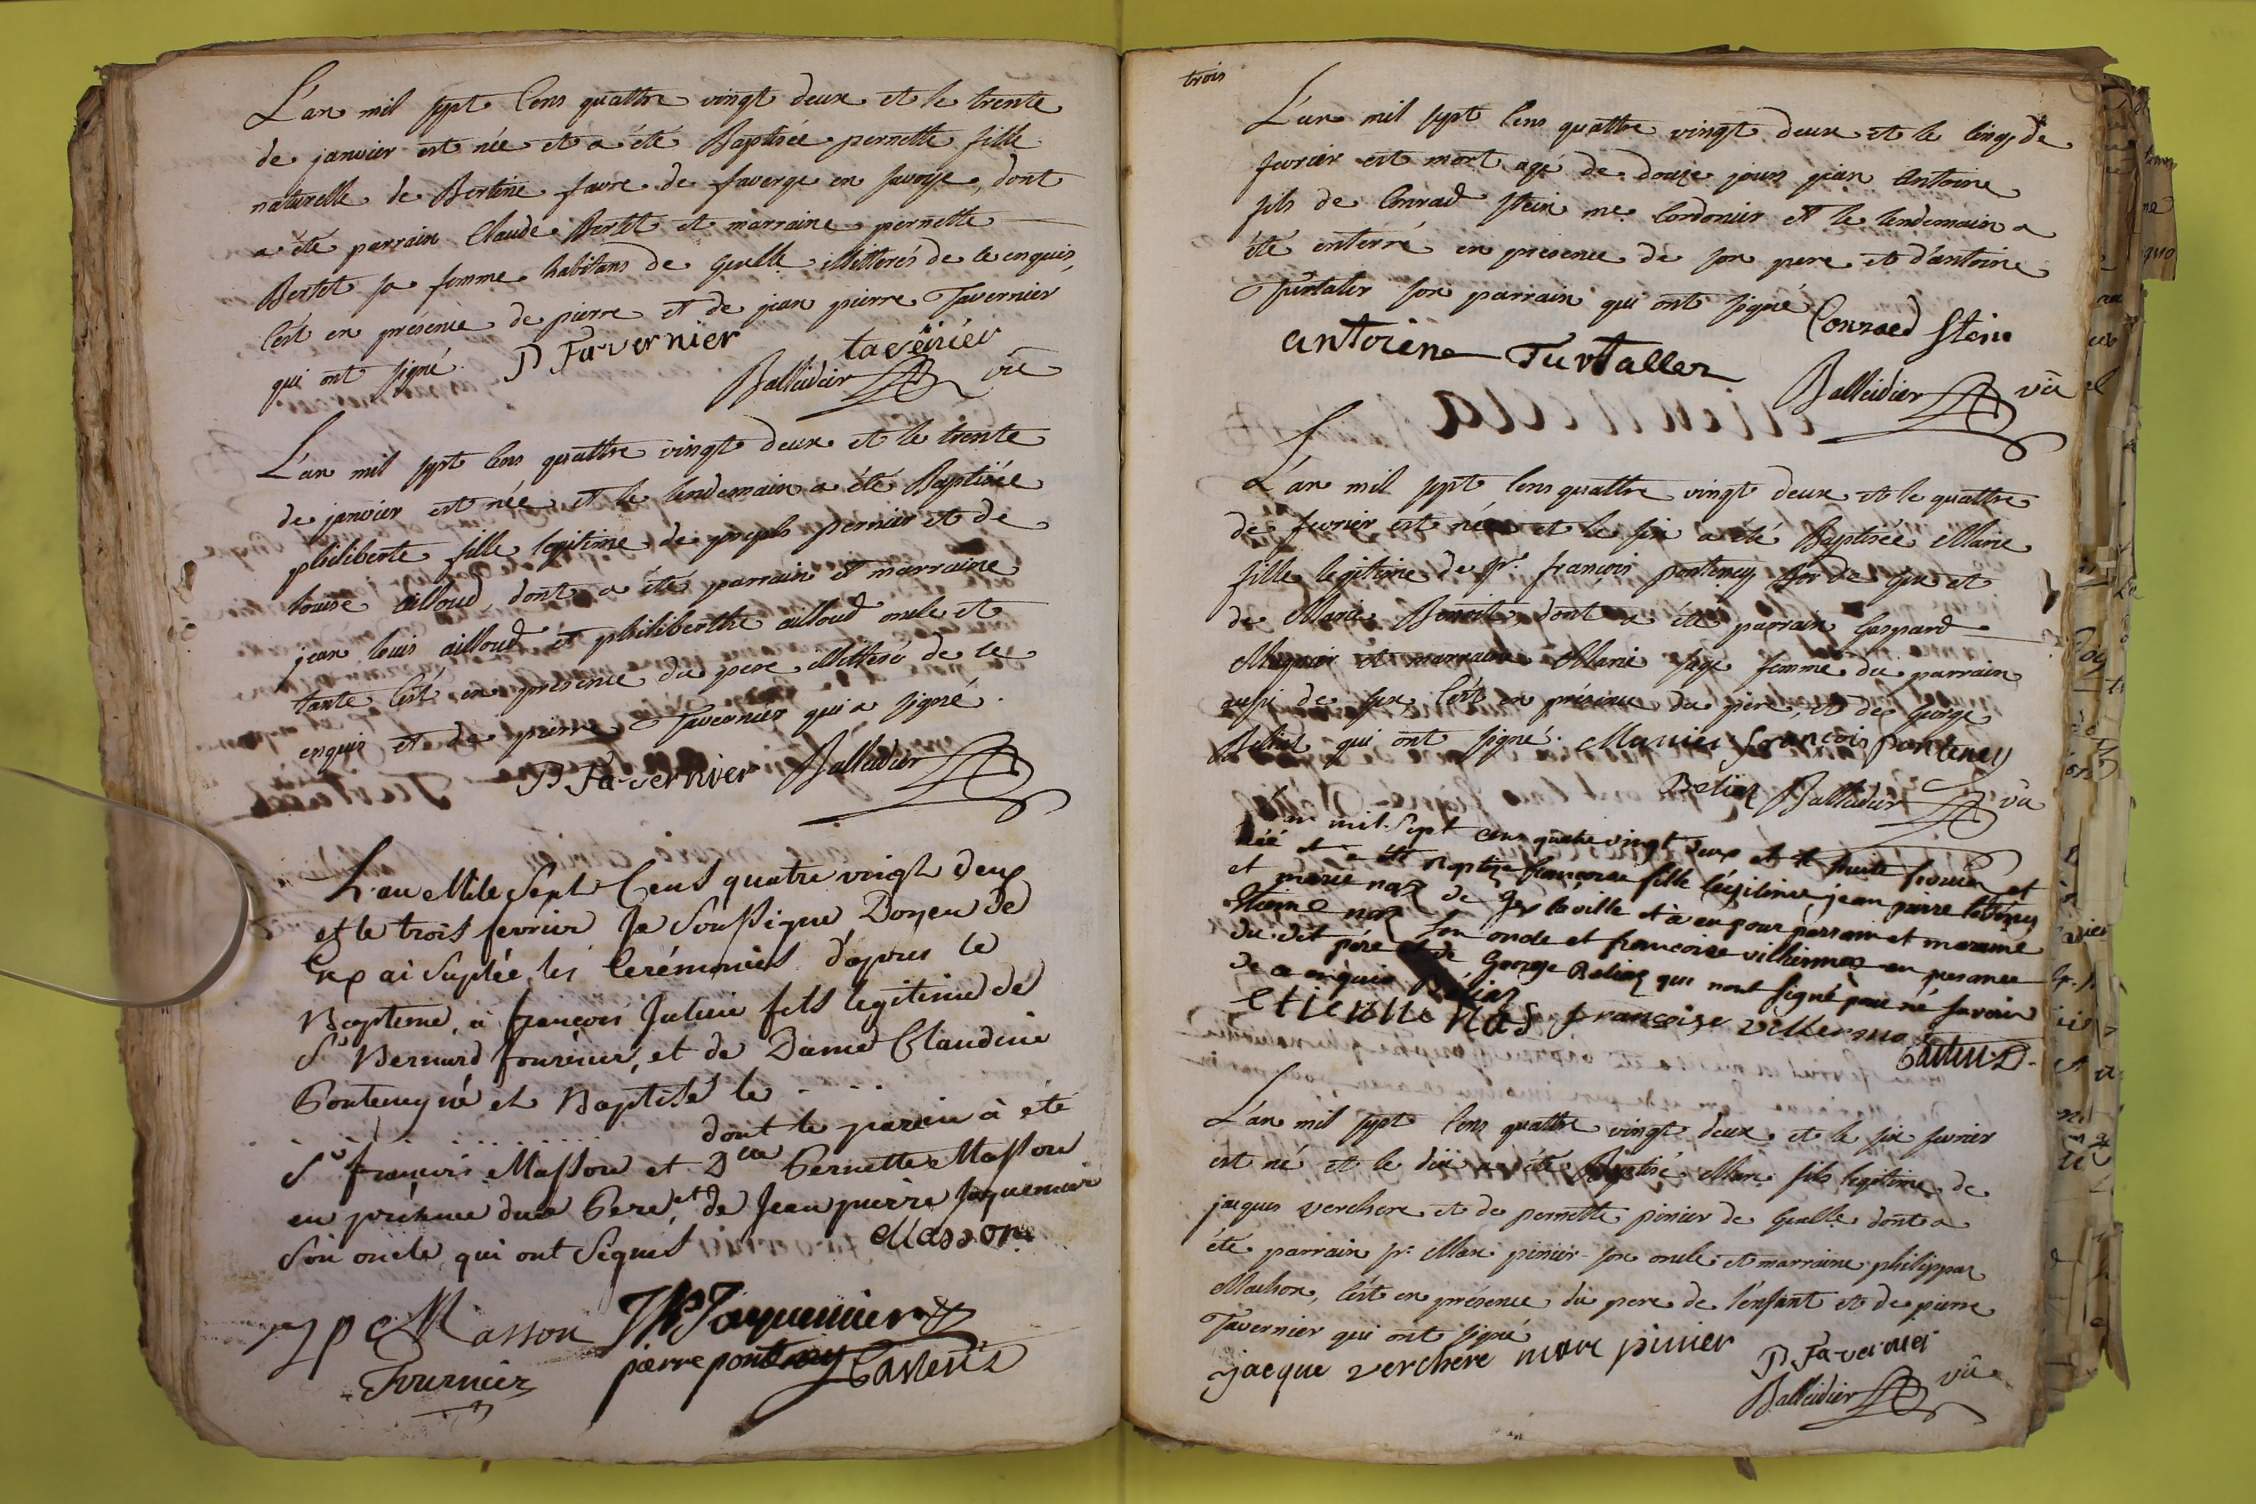 L'an mil sept cens quattre vingt deux et le trente
de janvier est née et a été Baptisée pernette fille
naturelle de Bertine favre de faverge en savoye, dont
a été parrain Claude Bertet et marraine pernette
Bertet sa femme habitans de Gexlle illitterés de ce enquis,
C'est en présence de pierre et de jean pierre Tavernier
qui ont signé. P Tavernier tavernier
Balleidier vû
L'an mil sept cens quattre vingt deux et le trente
de janvier est née et le lendemain a été Baptisée
philiberte fille legitime de joseph pernier et de
louise ailloud, dont a été parrain et marraine
jean louis ailloud et philiberthe ailloud oncle et
tante C'est en présence du pere illitteré de ce
enquis et de pierre Tavernier qui a signé.
P Tavernier Balleidier
L'an Mile Sept Cens quatre vingt deux
et le trois fevrier Je Soussigné Doyen de
Gex ai Suplée les Cerémonies d'apres le
Baptême, à françois Julien fils legitime de
Sr Bernard fournier, et de Dame Claudine
Pontenay né et Baptisé le . . .
. . . . . . . . dont le parein à été
Sr françois Masson et Dlle Pernette Masson
en présence du Pere, et de Jean pierre Jaquemier
Son oncle qui ont Signés Masson
JP Masson JP Jaquemier
pierre pontenay Castin D
Fournier
trois
L'an mil sept cens quattre vingt deux et le cinq de
fevrier est mort agé de douze jours jean Antoine
fils de Conrad stein me. Cordonier et le lendemain a
été enterré en presence de son pere et d'antoine
Turtaler son parrain qui ont signé Conraed Stein
antoine Turtaller
Balleidier vû
L'an mil sept cens quattre vingt deux et le quattre
de fevrier est née et le six a été Baptisée Marie
fille legitime de Sr. françois pontenay Bor de Gex et
de Marie Benoit, dont a été parrain Gaspard
Magnier et marraine Marie sage femme du parrain
aussi de Gex C'est en présence du père, et de George
Béliaz qui ont signé. Manier françois pontenay
Béliaz Balleidier vû
L'an mil Sept cens quatre vingt deux et le huite fevrier est
née et a été Baptizé francoise fille légitime jean pierre
et marie nas de Gex la ville et à eu pour parrain et marainne
Etienne nas son oncle et francoise villiermos en presance
du dit pére et de George Beliaz qui nont signé pour né savoir
de ce enquis Béliaz
etienne nas françoise villermos
Castin D.
L'an mil sept cens quattre vingt deux et le six fevrier
est né et le dix a été Baptisé Marc fils legitime de
jacques verchere et de pernette pinier de Gexlle dont a
été parrain Sr. Marc pinier son oncle et marraine philippaz
Mathon, C'est en présence du pere de l'enfant et de pierre
Tavernier qui ont signé
jacque verchere marc pinier P. Tavernier
Balleidier vû